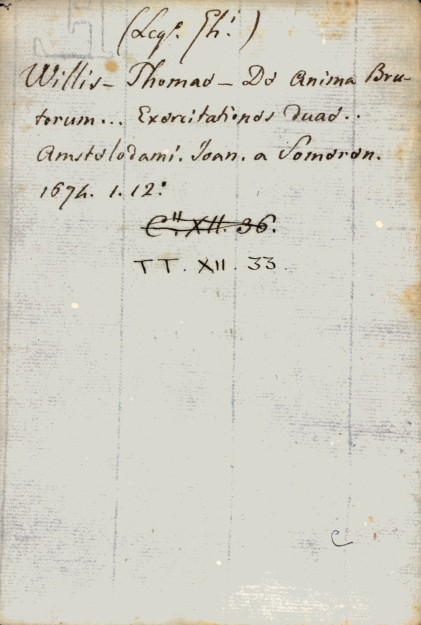 (Legº. Għi.)
Willis - Thomas - De Anima Bru-
torum... Exercitationes duae..
Amstelodami. Joan. a Someren.
1674. 1. 12º
C.II XII. 36.
TT. XII. 33